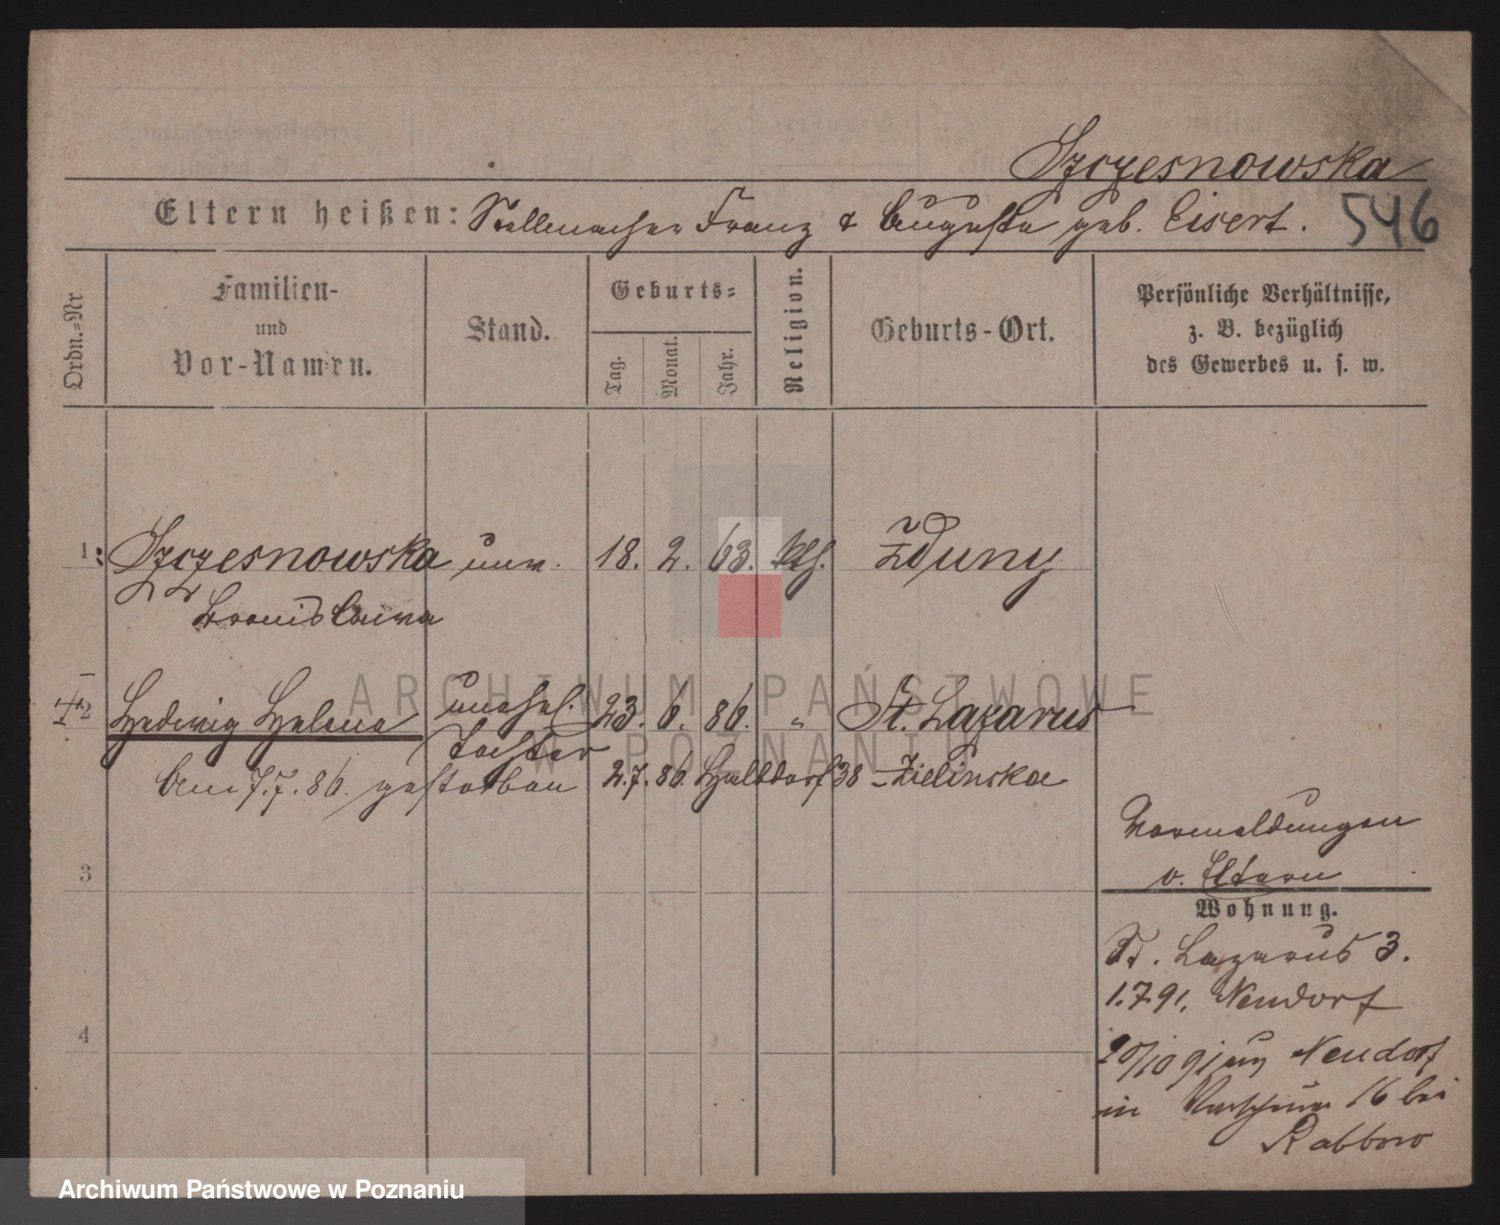 Szczesnowska
Eltern heißen: Stellmacher Franz & Auguste geb. Eisert. 546
Ordn.-Nr.
Familien-
und
Vor-Namen.
Stand.
Geburts-
Tag.
Monat.
Jahr.
Religion.
Geburts-Ort.
Persönliche Verhältnisse,
z. B. bezüglich
des Gewerbes u. s. w.
1 Szczesnowska unv. 18. 2. 63. kth. Żduny
Bronislawa
2 Hedwig Helene unehel. 23. 6. 86. " St. Lazarus
Tochter
Am 7.7.86. gestorben 2.7.86. Halbdorf 38 - Zielinska
3
4
Vormeldungen
v. Eltern
Wohnung.
St. Lazarus 3.
1.7.91. Neudorf
20/10 91 Neudorf
in 16 bei
Rabbow
ARCHIWUM PAŃSTWOWE
W POZNANIU
Archiwum Państwowe w Poznaniu